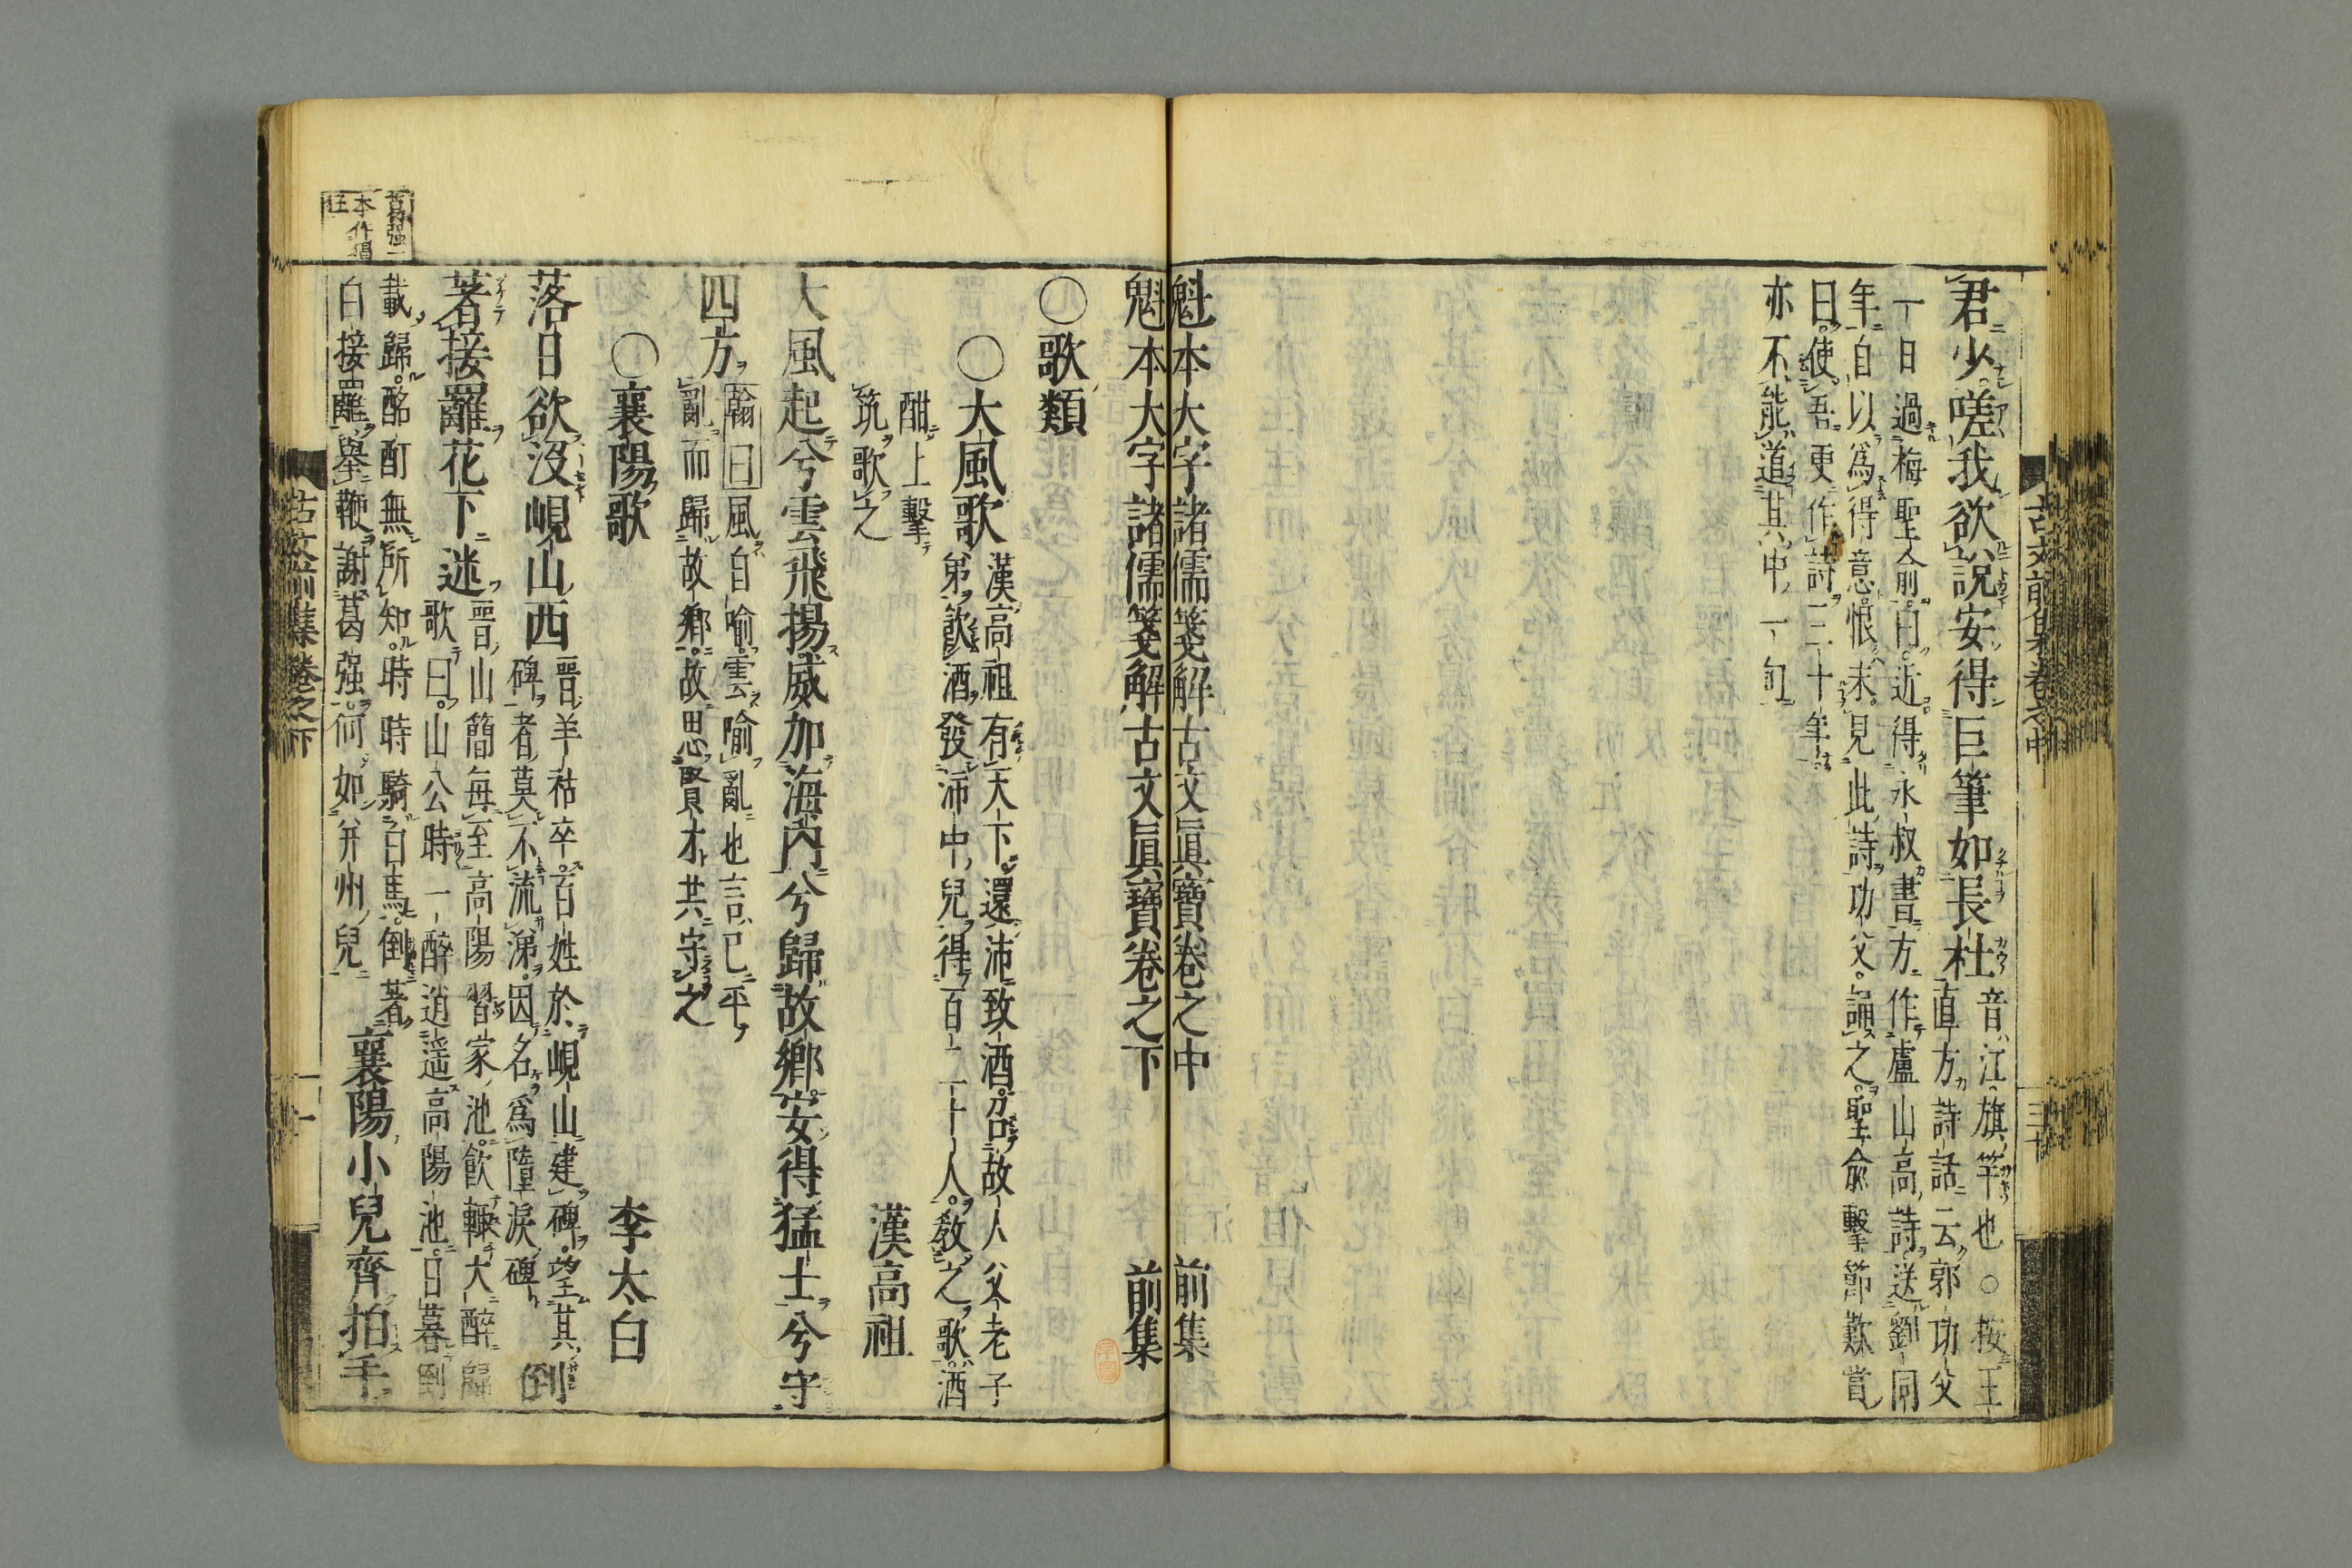 古文前集卷之中
三十
君少嗟我欲說安得巨筆如長杠
音江旗竿也○按王
直方詩話云郭功父
一日過梅聖俞曰近得永叔書方作盧山高詩送劉同
年自以爲得意恨未見此詩功父誦之聖俞擊節歎賞
曰使吾更作詩三十年
亦不能道其中一句
魁本大字諸儒箋解古文眞寶卷之中 前集
魁本大字諸儒箋解古文眞寶卷之下 前集
○歌類
○大風歌
漢高祖有天下還沛致酒召故人父老子
弟飮酒發沛中兒得百二十人敎之歌酒
酣上擊
筑歌之
漢高祖
大風起兮雲飛揚威加海內兮歸故鄕安得猛士兮守
四方
翰曰風自喻雲喻亂也言已平
亂而歸故鄕故思賢才共守之
○襄陽歌 李太白
落日欲沒峴山西
晉羊祜卒百姓於峴山建碑望其
碑者莫不流涕因名爲墮淚碑
倒
著接䍦花下迷
晉山簡每至高陽習家池飮輒大醉歸
歌曰山公時一醉逍遥高陽池日暮倒
載歸酩酊無所知時時騎白馬倒著
白接䍦擧鞭謝葛强何如幷州兒
襄陽小兒齊拍手
葛强一
本作彊
古文前集卷之下
一